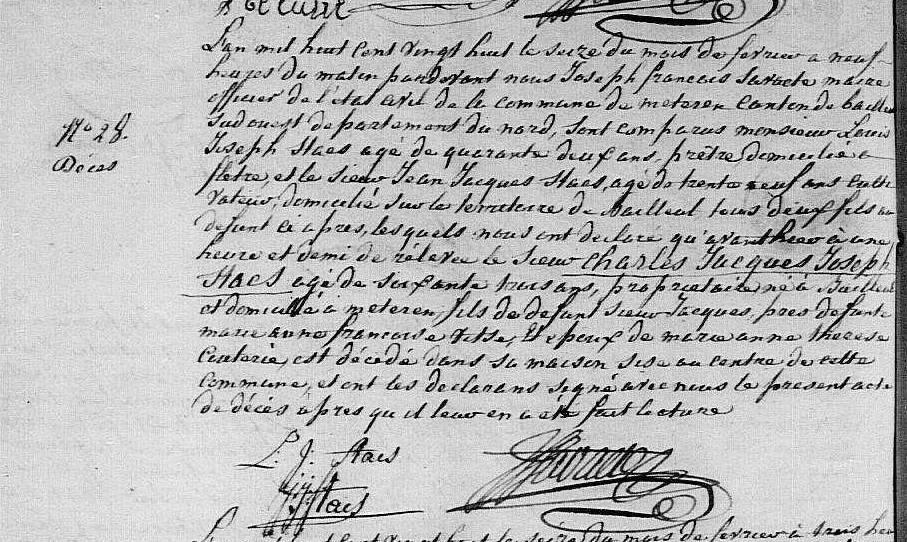 L'an mil huit cent vingt huit le seize du mois de fevrier a neuf
heures du matin pardevant nous Joseph francois maire
officier de l'état civil de la commune de meteren canton de bailleul
sud ouest departement du nord, sont comparus monsieur Louis
N° 28.
Décès
Joseph Staes agé de quarante deux ans, prêtre domicilié a
fletre, et le sieur Jean Jacques Staes, agé de trente neuf ans culti
vateur, domicilié sur le territoire de Bailleul tous deux fils au
defunt ci apres, les quels nous ont declaré qu'avant hier à une
heure et demi de rélevée le sieur Charles Jacques Joseph
Staes agé de soixante trois ans, proprietaire, né à Bailleul
et domicilié à meteren, fils de defunt sieur Jacques, pres defunte
marie anne francoise Titse, Et epoux de marie anne therese
est décédé dans sa maison sise au centre de cette
commune, et ont les déclarans signé avec nous le present acte
de décès apres qu il leur en a été fait lecture
L. J. Staes
J. J. Staes
le seize du mois de fevrier à trois